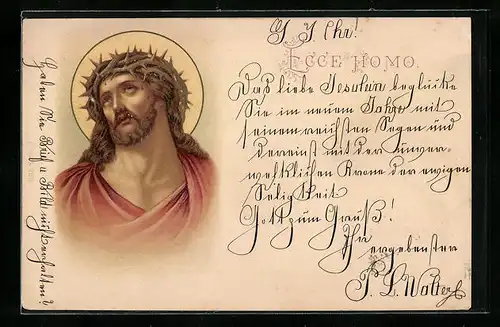 G. J. Chr!
ECCE HOMO.
Das liebe Jesulein beglücke
Sie im neuem Jahre mit
seinem reichsten Segen und
dereinst mit der unver-
welklichen Krone der ewigen
Seligkeit
Gott zum Gruß!
Ihr
ergebenster
P. L. Walter
Haben Sie Brief u Bild nicht erhalten?